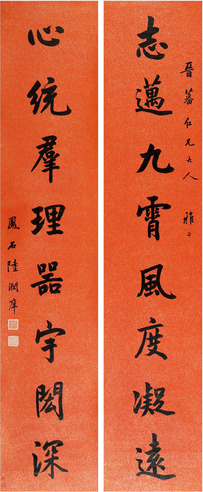 晉蕃仁兄大人 雅
志邁九霄風度凝遠
心統羣理器宇閎深
鳳石陸潤庠